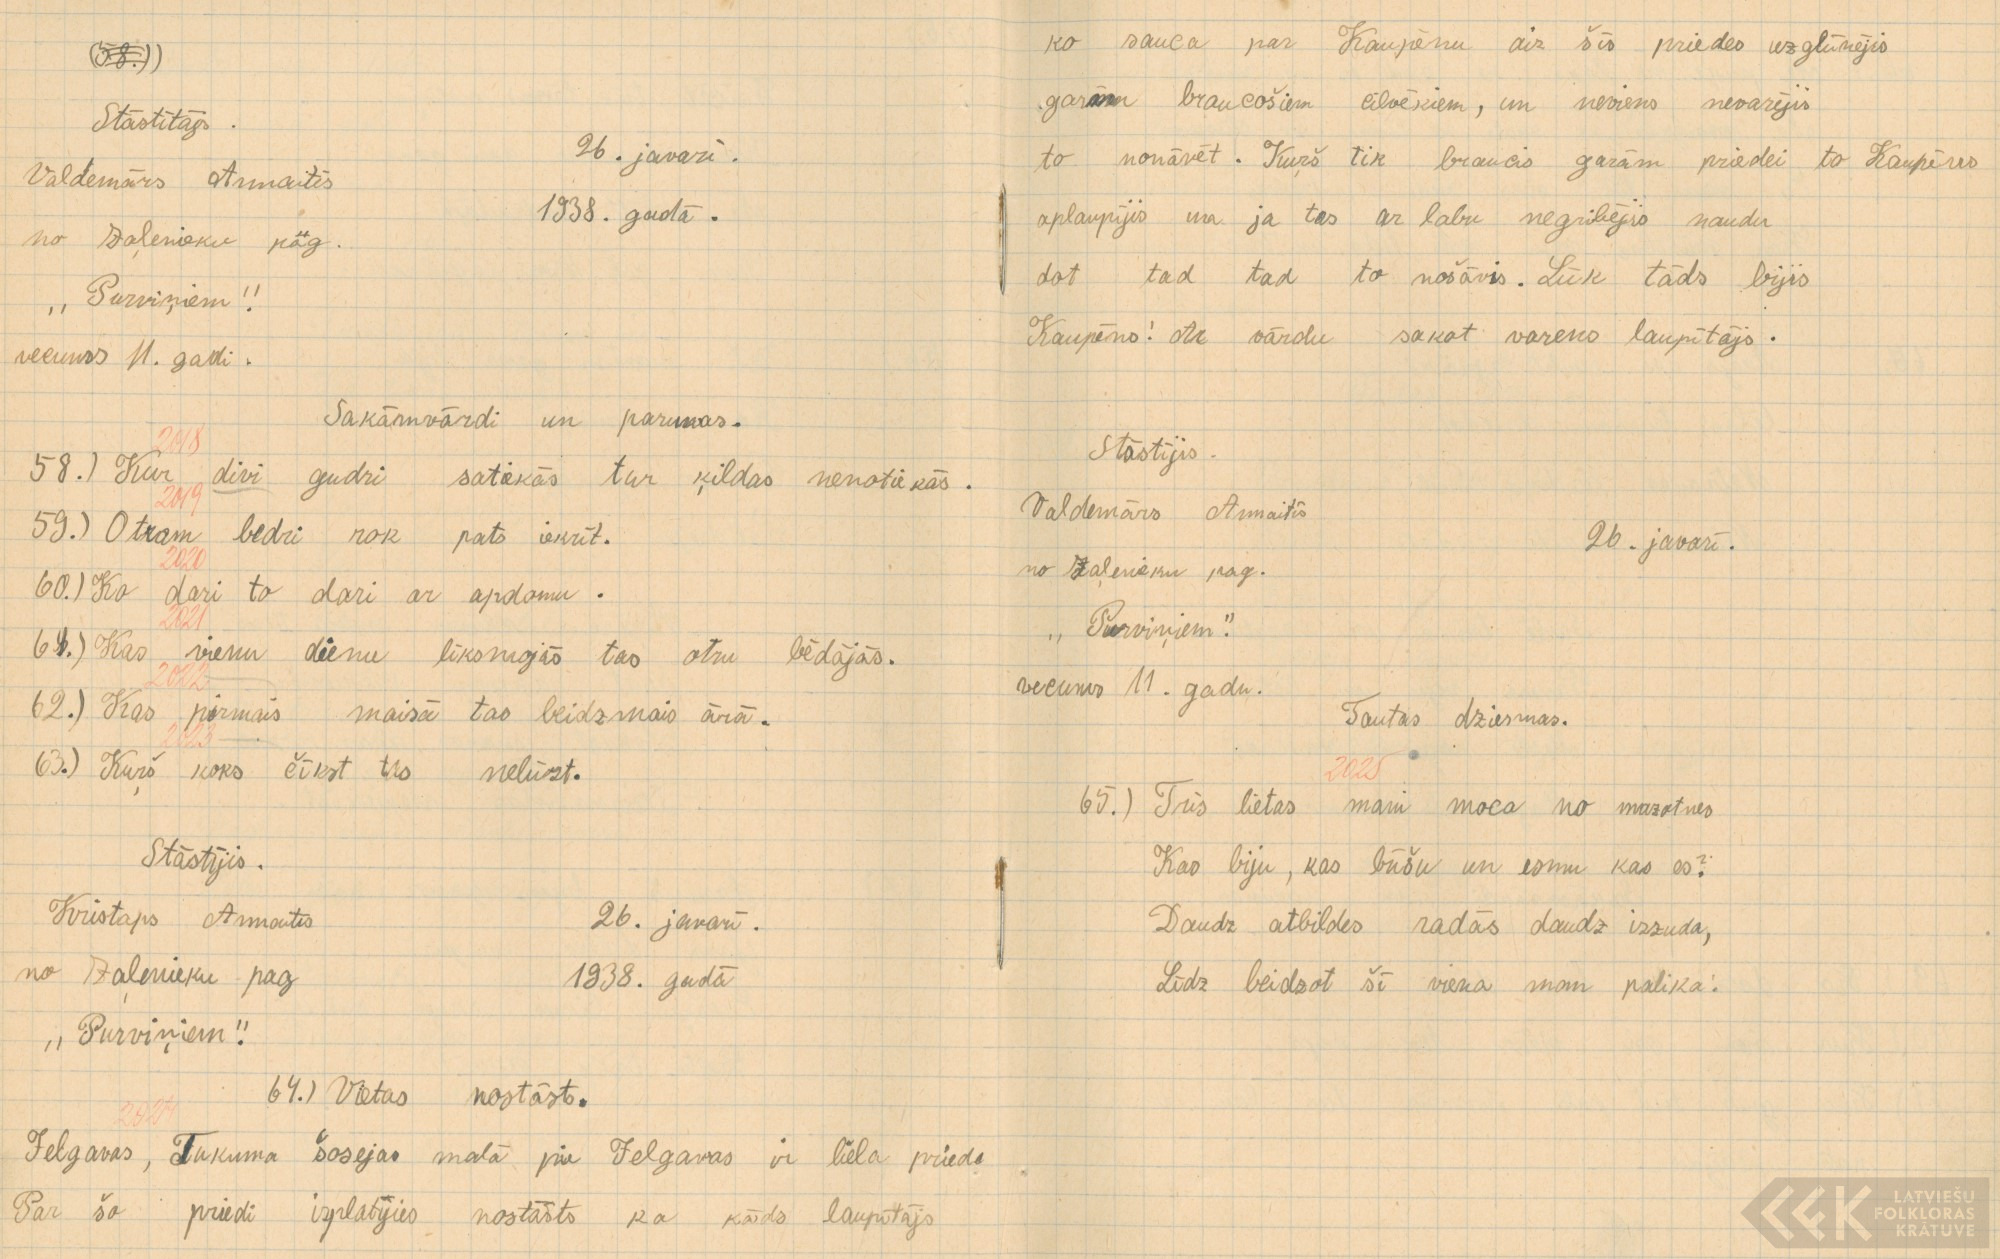 Stāstītājs.
26. javarī.
Valdemārs Annaitis
1938. gadā.
no Zaļenieku pag.
,, Purviņiem!!
vecums 11. gadi.
Sakāmvārdi un parunas.
2018
58.) Kur divi gudri satiekās tur ķildas nenotiekās.
2019
59.) Otram bedri rok pats iekrīt.
2020
60.) Ko dari to dari ar apdomu.
2021
61.) Kas vienu dienu līksmojās tas otru bēdājās.
2022
62.) Kas pirmais maisā tas beidzmais ārā.
2023
63.) Kuŗš koks čīkst tas nelūzt.
Stāstījis.
Kristaps Annaitis
26. javarī.
no Zaļenieku pag
1938. gadā
,, Purviņiem!!
64.) Vietas nostāsts.
2024
Jelgavas, Tukuma šosejas malā pie Jelgavas ir liela priede
Par šo priedi izplatījies nostāsts ka kāds laupītājs
ko sauca par Kaupēnu aiz šīs priedes uzglūnējis
garām braucošiem cilvēkiem, un neviens nevarējis
to nonāvēt. Kuŗš tik braucis garām priedei to Kaupēns
aplaupījis un ja tas ar labu negribējis naudu
dot tad tad to nošāvis. Lūk tāds bijis
Kaupēns! Ar vārdu sakot varens laupītājs.
Stāstījis.
Valdemārs Annaitis
26. javarī.
no Zaļenieku pag.
,, Purviņiem!!
vecums 11. gadu.
Tautas dziesmas.
2025
65.) Trīs lietas mani moca no mazotnes
Kas biju, kas būšu un esmu kas es?
Daudz atbildes radās daudz izzuda,
Līdz beidzot šī viena man palika:
LATVIEŠU
FOLKLORAS
KRĀTUVE